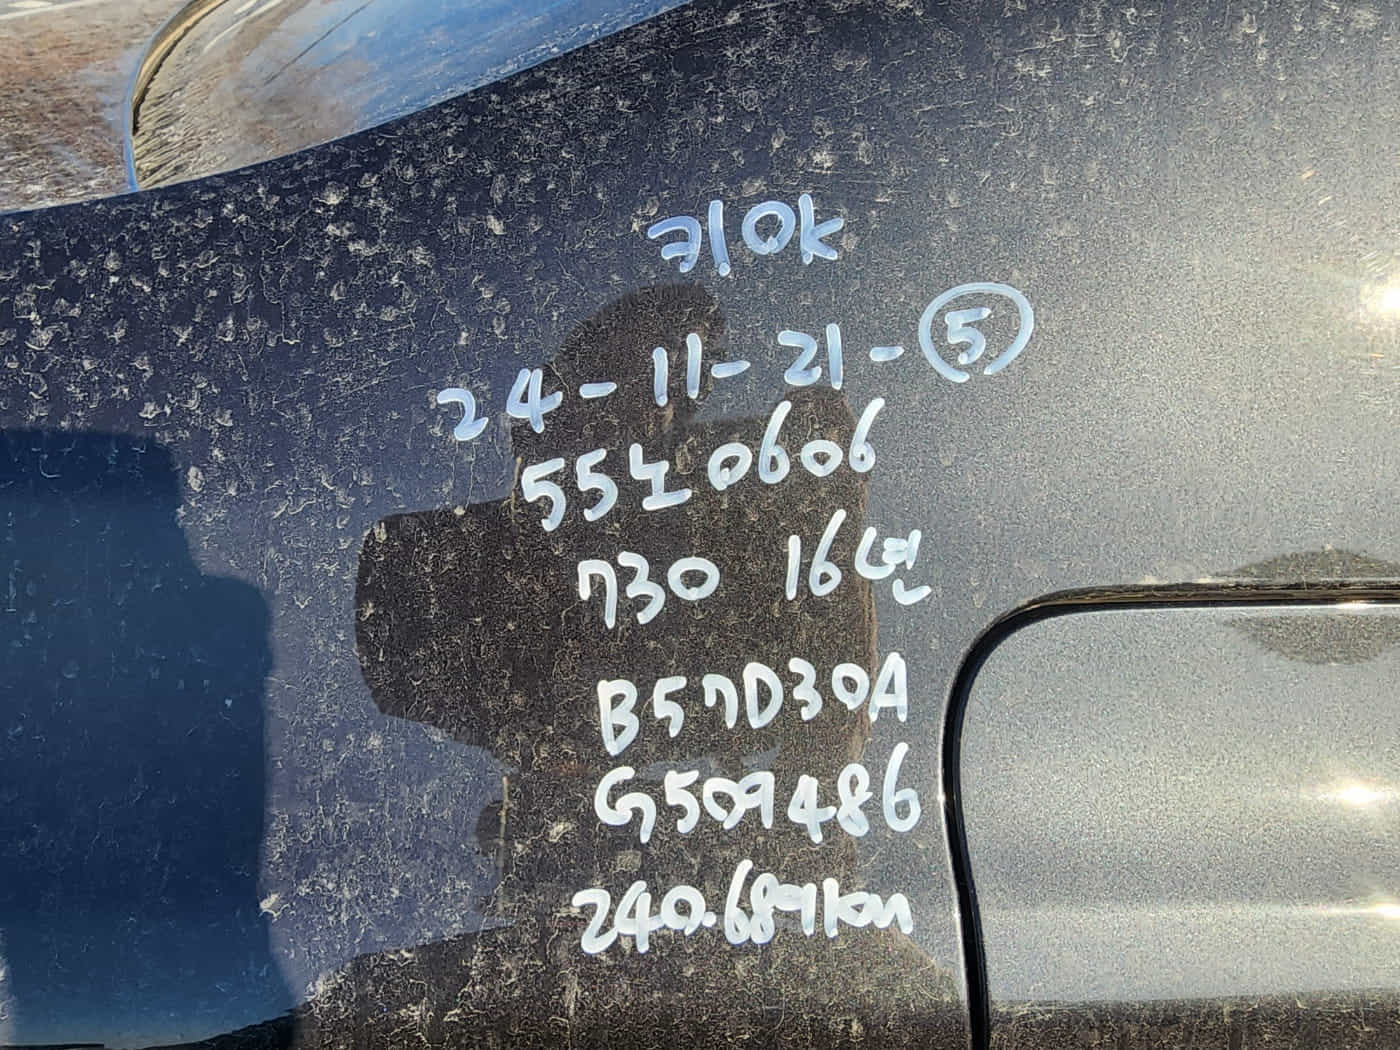 키OK
24-11-21-⑤
55노0606
730 16년
B57D30A
G509486
240.689km